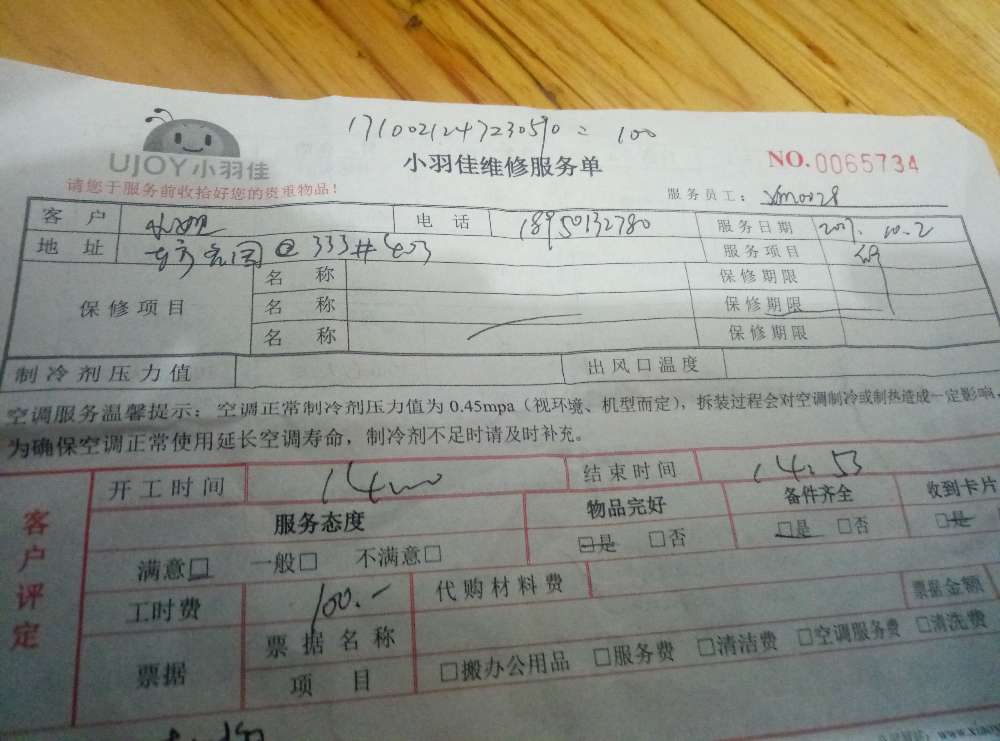 1710021247230590=100
UJOY小羽佳
小羽佳维修服务单
NO.0065734
请您于服务前收拾好您的贵重物品！
服务员工：xm0028
客户 电话 18950132780 服务日期 2017.10.2
地址 @333#403 服务项目
保修项目 名称 保修期限
名称 保修期限
名称 保修期限
制冷剂压力值 出风口温度
空调服务温馨提示：空调正常制冷剂压力值为0.45mpa（视环境、机型而定），拆装过程会对空调制冷或制热造成一定影响，
为确保空调正常使用延长空调寿命，制冷剂不足时请及时补充。
客户评定
开工时间 14:00 结束时间 14:53
服务态度 物品完好 备件齐全 收到卡片
满意□ 一般□ 不满意□ □是 □否 □是 □否 □是
工时费 100.- 代购材料费
票据 票据名称 票据金额
项目 □搬办公用品 □服务费 □清洁费 □空调服务费 □清洗费